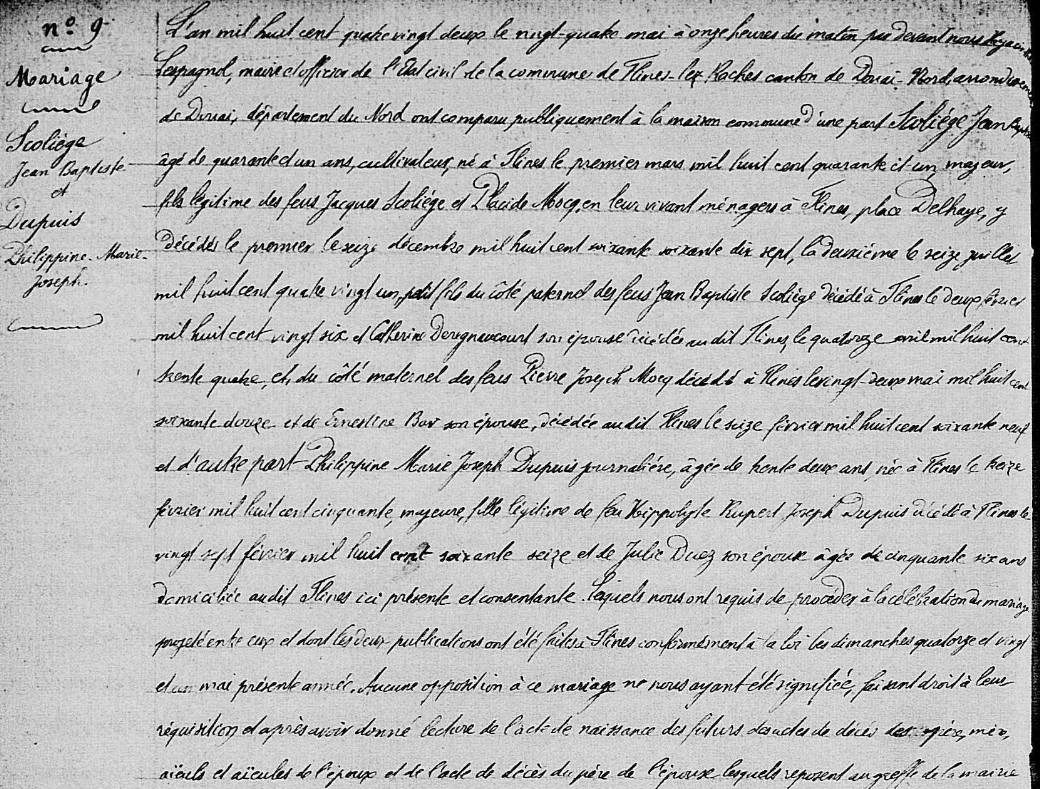 n° 9
Mariage
Scoliége
Jean Baptiste
et
Dupuis
Philippine-Marie-
Joseph.
L'an mil huit cent quatre vingt deux le vingt-quatre mai à onze heures du matin par devant nous
Lespagnol, maire et officier de l'Etat civil de la commune de Flines-lez-Raches canton de Douai-Nord, arrondissement
de Douai, département du Nord ont comparu publiquement à la maison commune d'une part Scoliége Jean Baptiste
âgé de quarante et un ans, cultivateur, né à Flines le premier mars mil huit cent quarante et un, majeur,
fils légitime des feus Jacques Scoliége et Placide Mocq, en leur vivant ménagers à Flines, place Delhaye, y
décédés le premier le seize décembre mil huit cent soixante soixante dix sept, la deuxième le seize juillet
mil huit cent quatre vingt un, petit fils du côté paternel des feus Jean Baptiste Scoliége décédé à Flines le deux février
mil huit cent vingt six et Catherine Deregnaucourt son épouse décédée audit Flines le quatorze avril mil huit cent
trente quatre, et, du côté maternel des feus Pierre Joseph Mocq décédé à Flines le vingt-deux mai mil huit cent
soixante douze et de Ernestine Bar son épouse, décédée audit Flines le seize février mil huit cent soixante neuf
et d'autre part Philippine Marie Joseph Dupuis journalière, âgée de trente deux ans, née à Flines le treize
février mil huit cent cinquante, majeure, fille légitime de feu Hippolyte Rupert Joseph Dupuis décédé à Flines le
vingt sept février mil huit cent soixante seize et de Julie Duez son épouse âgée de cinquante six ans
domiciliée audit Flines ici présente et consentante. Lesquels nous ont requis de procéder à la célébration du mariage
projeté entre eux et dont les deux publications ont été faites à Flines conformément à la loi les dimanches quatorze et vingt
et un mai présente année. Aucune opposition à ce mariage ne nous ayant été signifiée, faisant droit à leur
réquisition et après avoir donné lecture de l'acte de naissance des futurs des actes de décès des père, mère,
aïeuls et aïeules de l'époux et de l'acte de décès du père de l'épouse lesquels reposent au greffe de la mairie